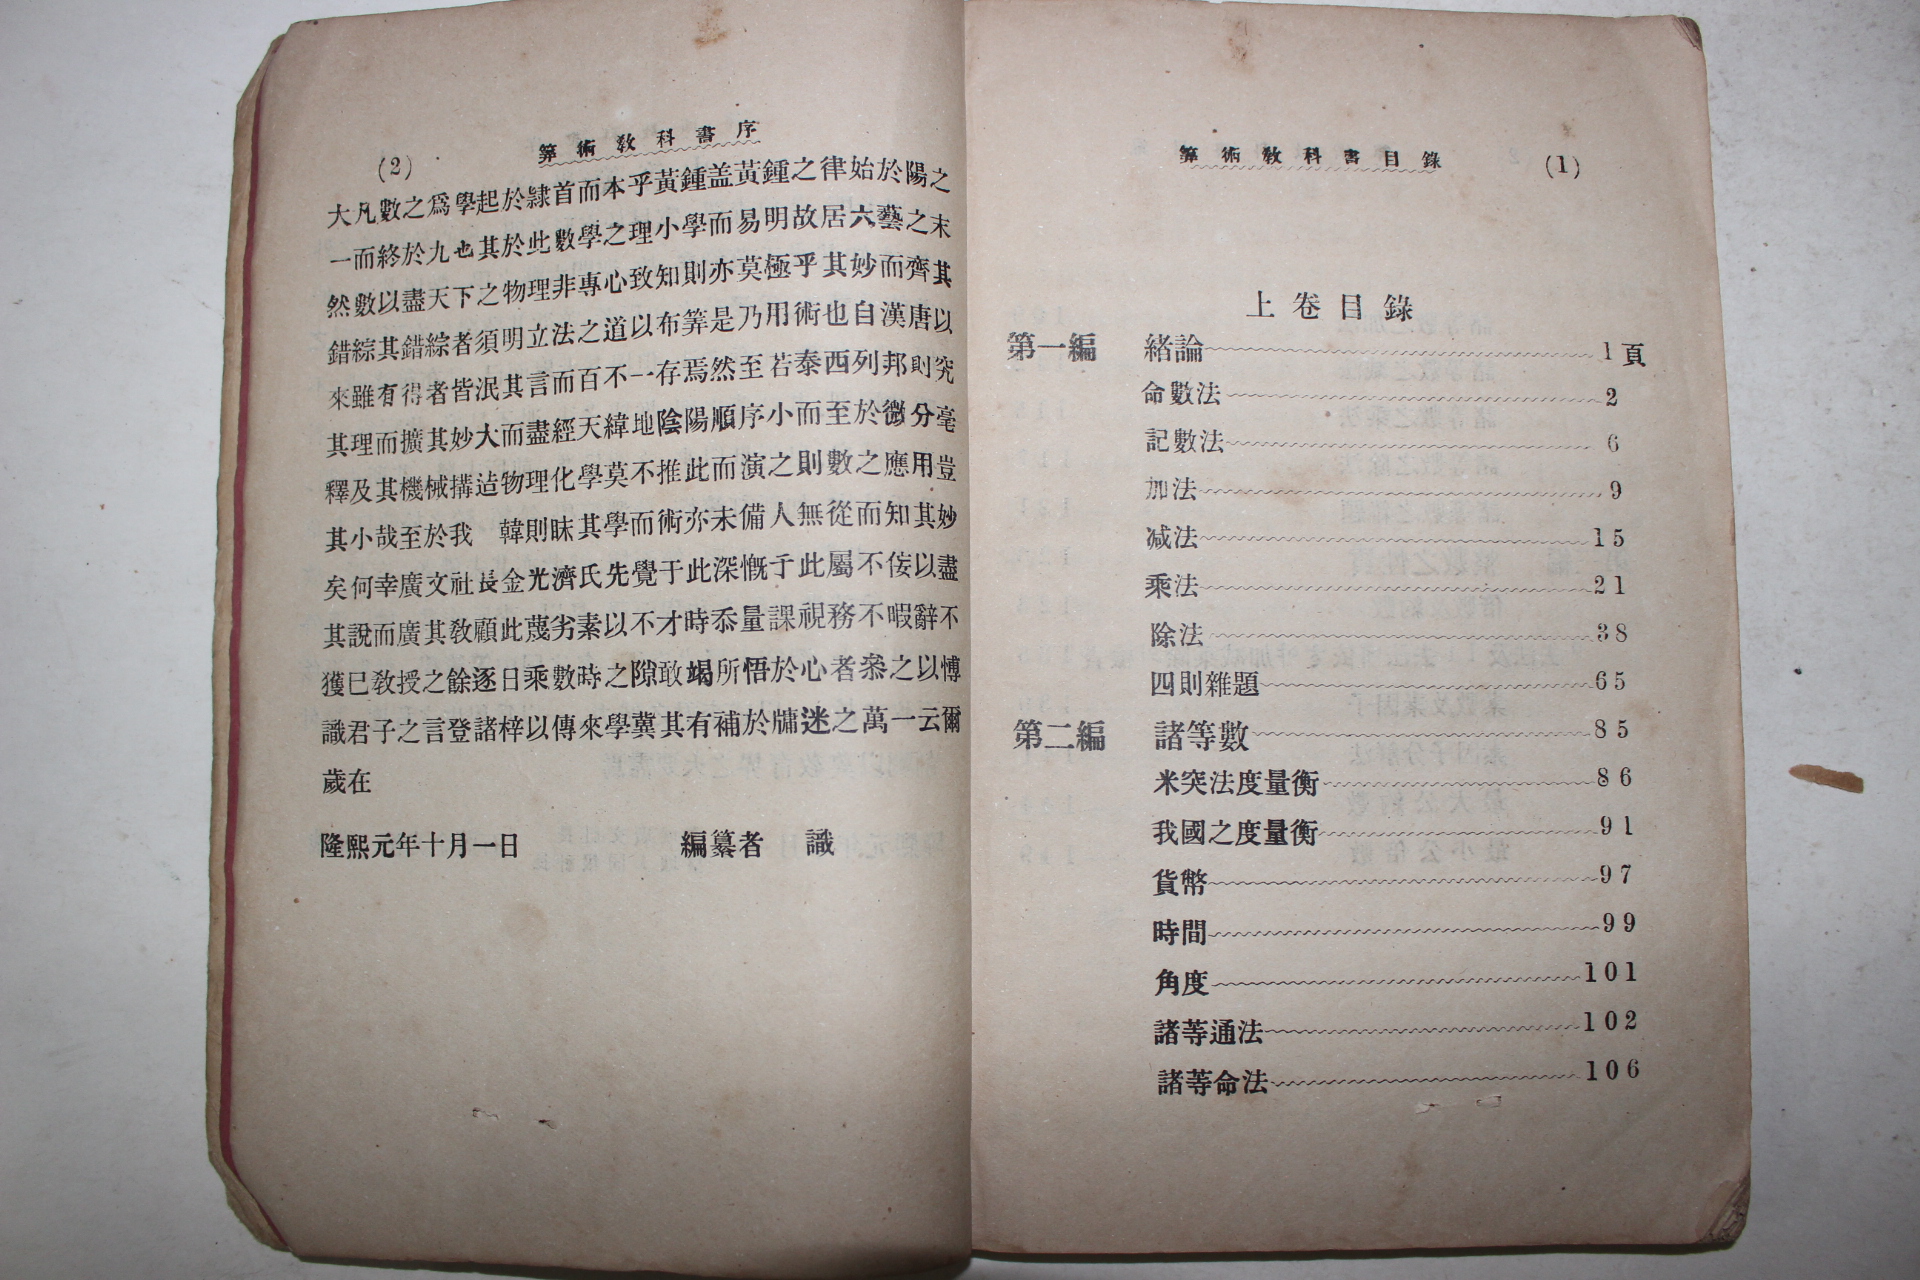 (2)
算術教科書序
大凡數之爲學起於隷首而本乎黃鍾盖黃鍾之律始於陽之
一而終於九也其於此數學之理小學而易明故居六藝之末
然數以盡天下之物理非專心致知則亦莫極乎其妙而齊其
錯綜其錯綜者須明立法之道以布筭是乃用術也自漢唐以
來雖有得者皆泯其言而百不一存焉然至若泰西列邦則究
其理而擴其妙大而盡經天緯地陰陽順序小而至於微分毫
釋及其機械搆造物理化學莫不推此而演之則數之應用豈
其小哉至於我 韓則昧其學而術亦未備人無從而知其妙
矣何幸廣文社長金光濟氏先覺于此深慨于此屬不侫以盡
其說而廣其敎顧此蔑劣素以不才時忝量課視務不暇辭不
獲已敎授之餘逐日乘數時之隙敢竭所悟於心者叅之以愽
識君子之言登諸梓以傳來學冀其有補於牗迷之萬一云爾
歲在
隆熙元年十月一日 編纂者 識
筭術敎科書目錄
(1)
上卷目錄
第一編 緒論 1頁
命數法 2
記數法 6
加法 9
减法 15
乘法 21
除法 38
四則雜題 65
第二編 諸等數 85
米突法度量衡 86
我國之度量衡 91
貨幣 97
時間 99
角度 101
諸等通法 102
諸等命法 106